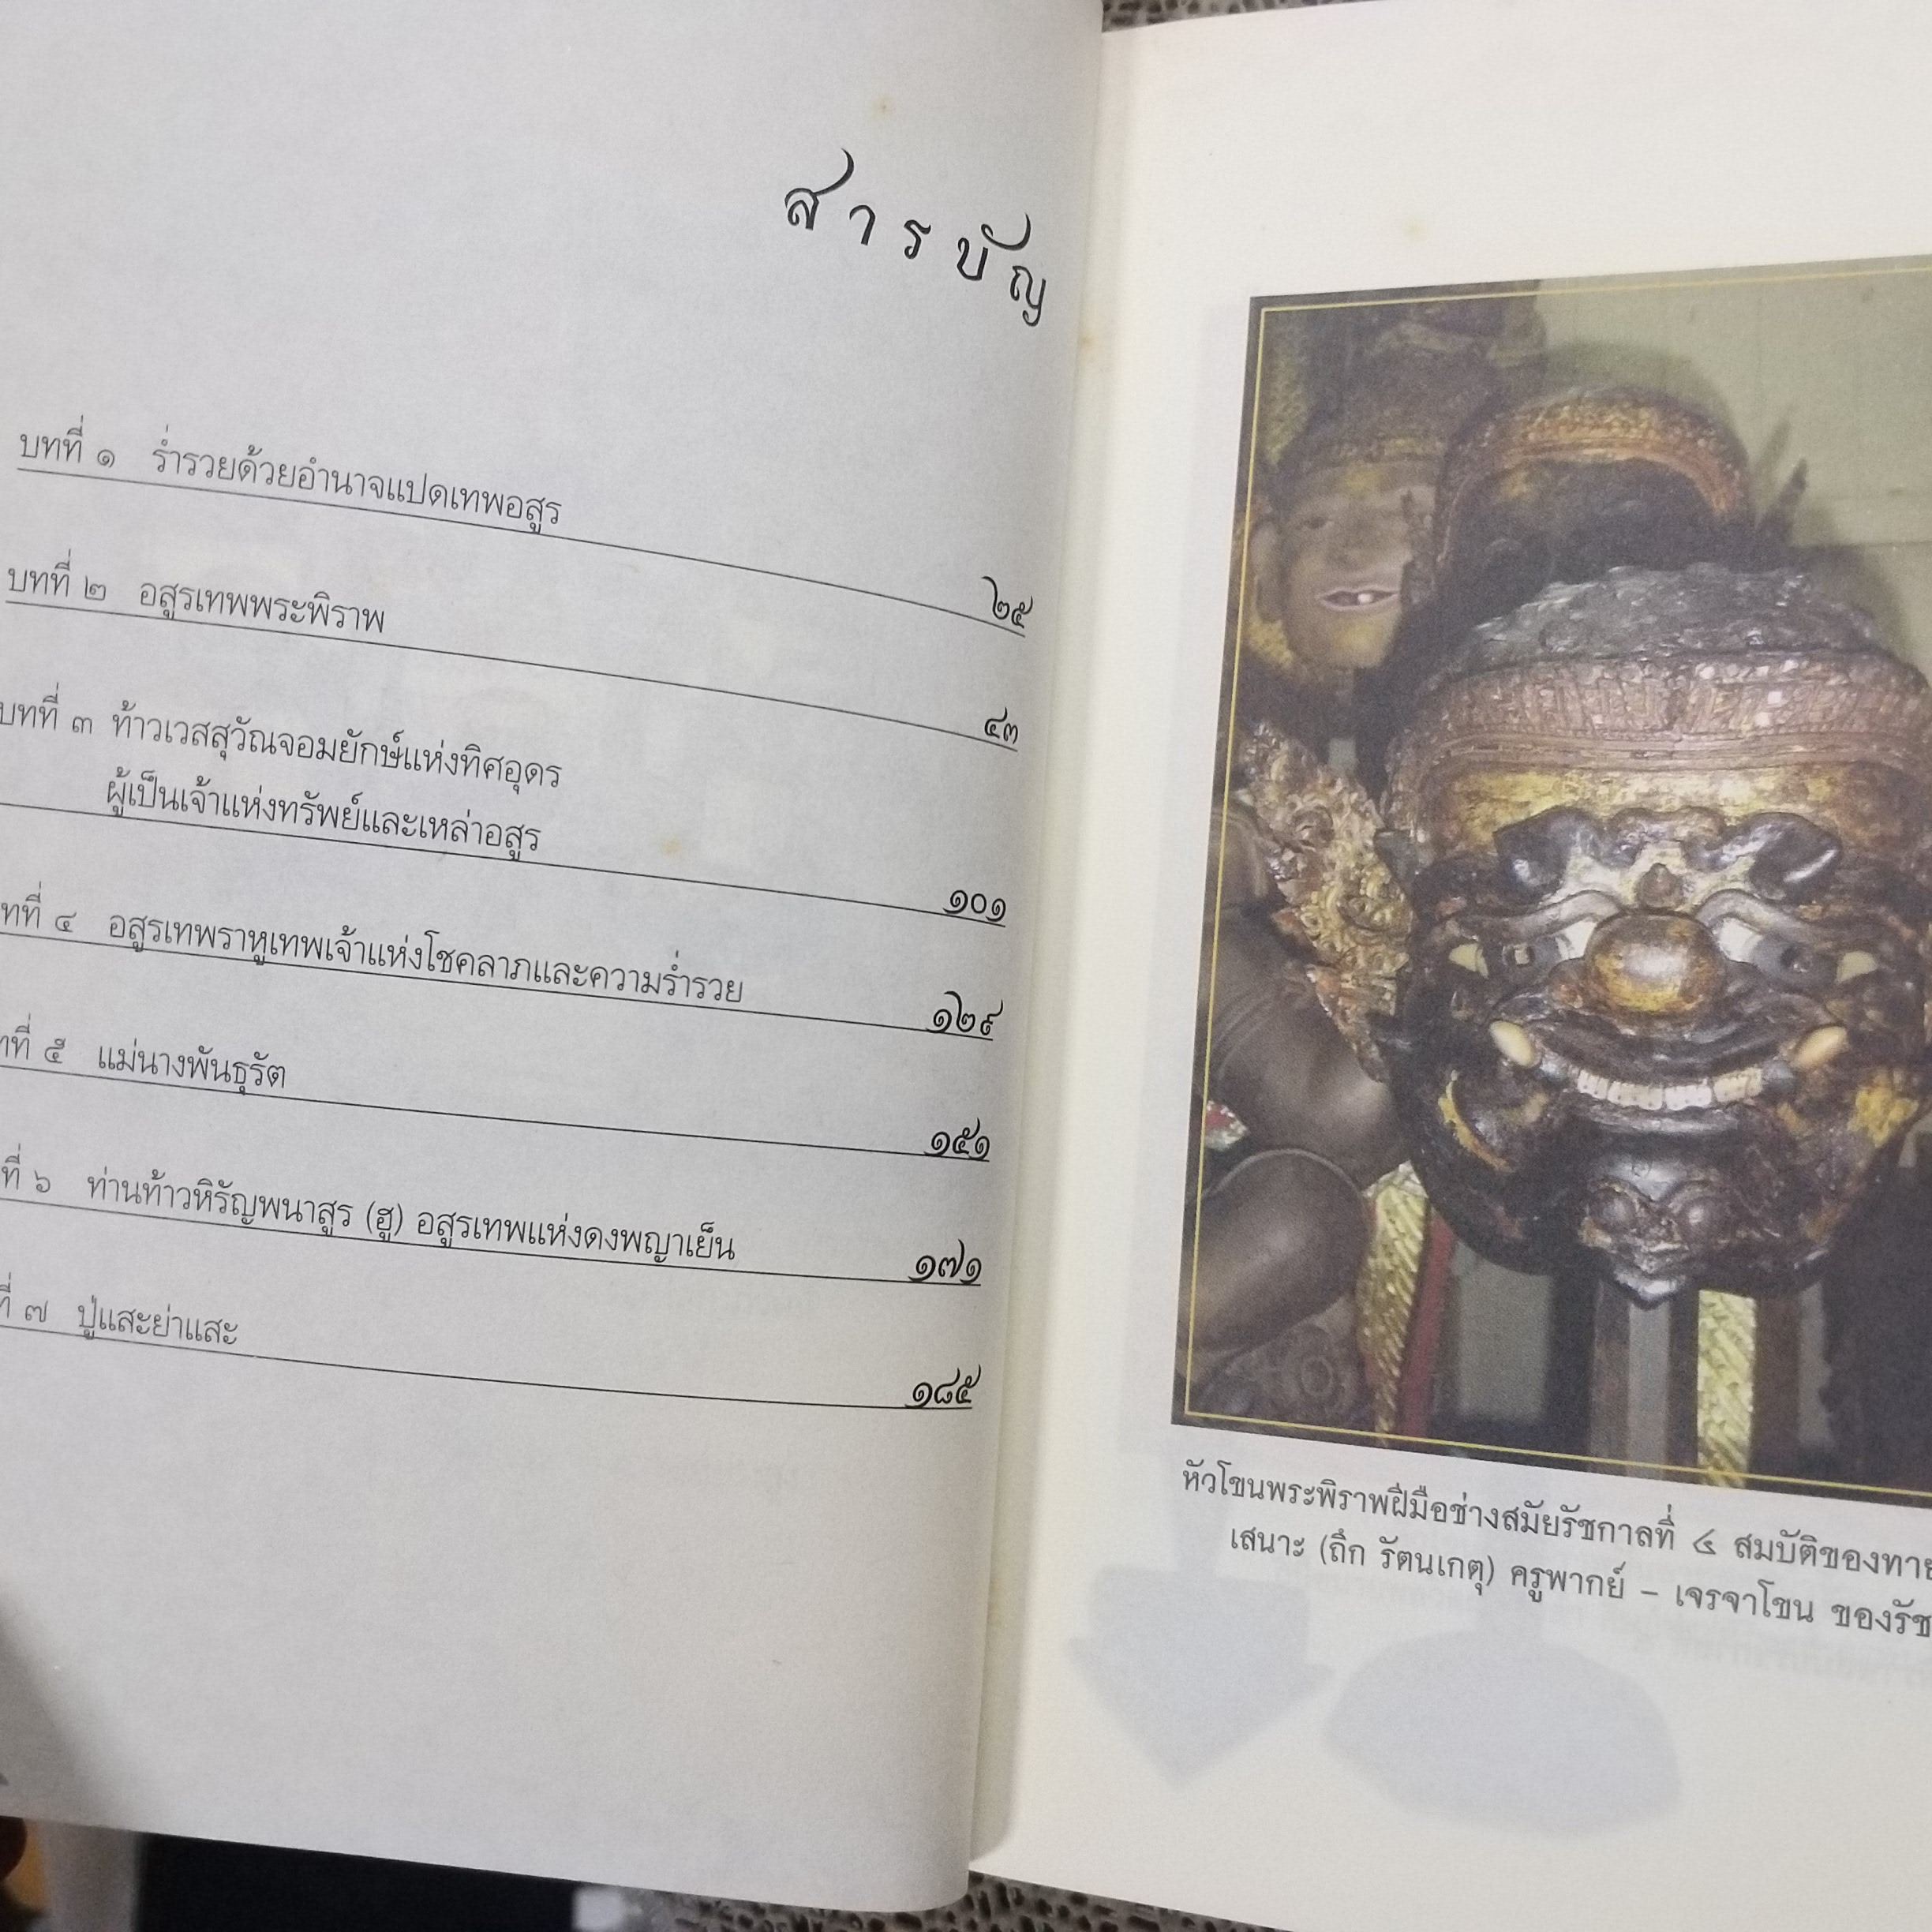 สารบัญ
บทที่ ๑ ร่ำรวยด้วยอำนาจแปดเทพอสูร
๒๕
บทที่ ๒ อสูรเทพพระพิราพ
๔๓
บทที่ ๓ ท้าวเวสสุวัณจอมยักษ์แห่งทิศอุดร
ผู้เป็นเจ้าแห่งทรัพย์และเหล่าอสูร
๑๐๑
ทที่ ๔ อสูรเทพราหูเทพเจ้าแห่งโชคลาภและความร่ำรวย
๑๒๙
ที่ ๕ แม่นางพันธุรัต
๑๕๑
ที่ ๖ ท่านท้าวหิรัญพนาสูร (ฮู) อสูรเทพแห่งดงพญาเย็น
๑๗๑
ที่ ๗ ปู่แสะย่าแสะ
๑๘๕
หัวโขนพระพิราพฝีมือช่างสมัยรัชกาลที่ ๔ สมบัติของทาย
เสนาะ (ถึก รัตนเกตุ) ครูพากย์ – เจรจาโขน ของรัช